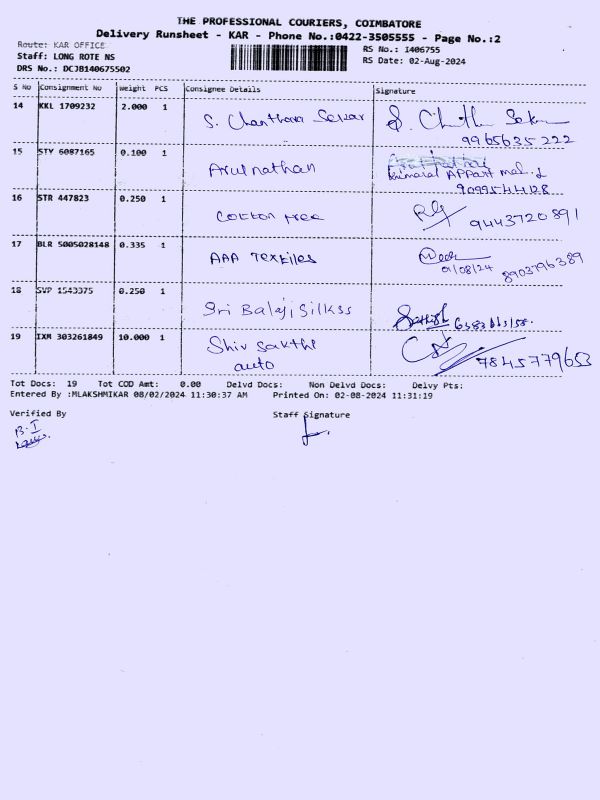 THE PROFESSIONAL COURIERS, COIMBATORE
Delivery Runsheet - KAR - Phone No.:0422-3505555 - Page No.:2
Route: KAR OFFICE
Staff: LONG ROTE NS
DRS No.: DCJB140675502
RS No.: I406755
RS Date: 02-Aug-2024
S No Consignment No Weight PCS Consignee Details Signature
14 KKL 1709232 2.000 1 S. Chanthara Sekar
9965635222
15 STY 6087165 0.100 1 Arulnathan
16 STR 447823 0.250 1 Cotton tree 9443720891
17 BLR 5005028148 0.335 1 AAA Textiles
01/08/24 8903796389
18 SVP 1543375 0.250 1 Sri Balaji Silkss
19 IXM 303261849 10.000 1 Shiv Sakthi
auto 7845779653
Tot Docs: 19 Tot COD Amt: 0.00 Delvd Docs: Non Delvd Docs: Delvy Pts:
Entered By :MLAKSHMIKAR 08/02/2024 11:30:37 AM Printed On: 02-08-2024 11:31:19
Verified By Staff Signature
B.I